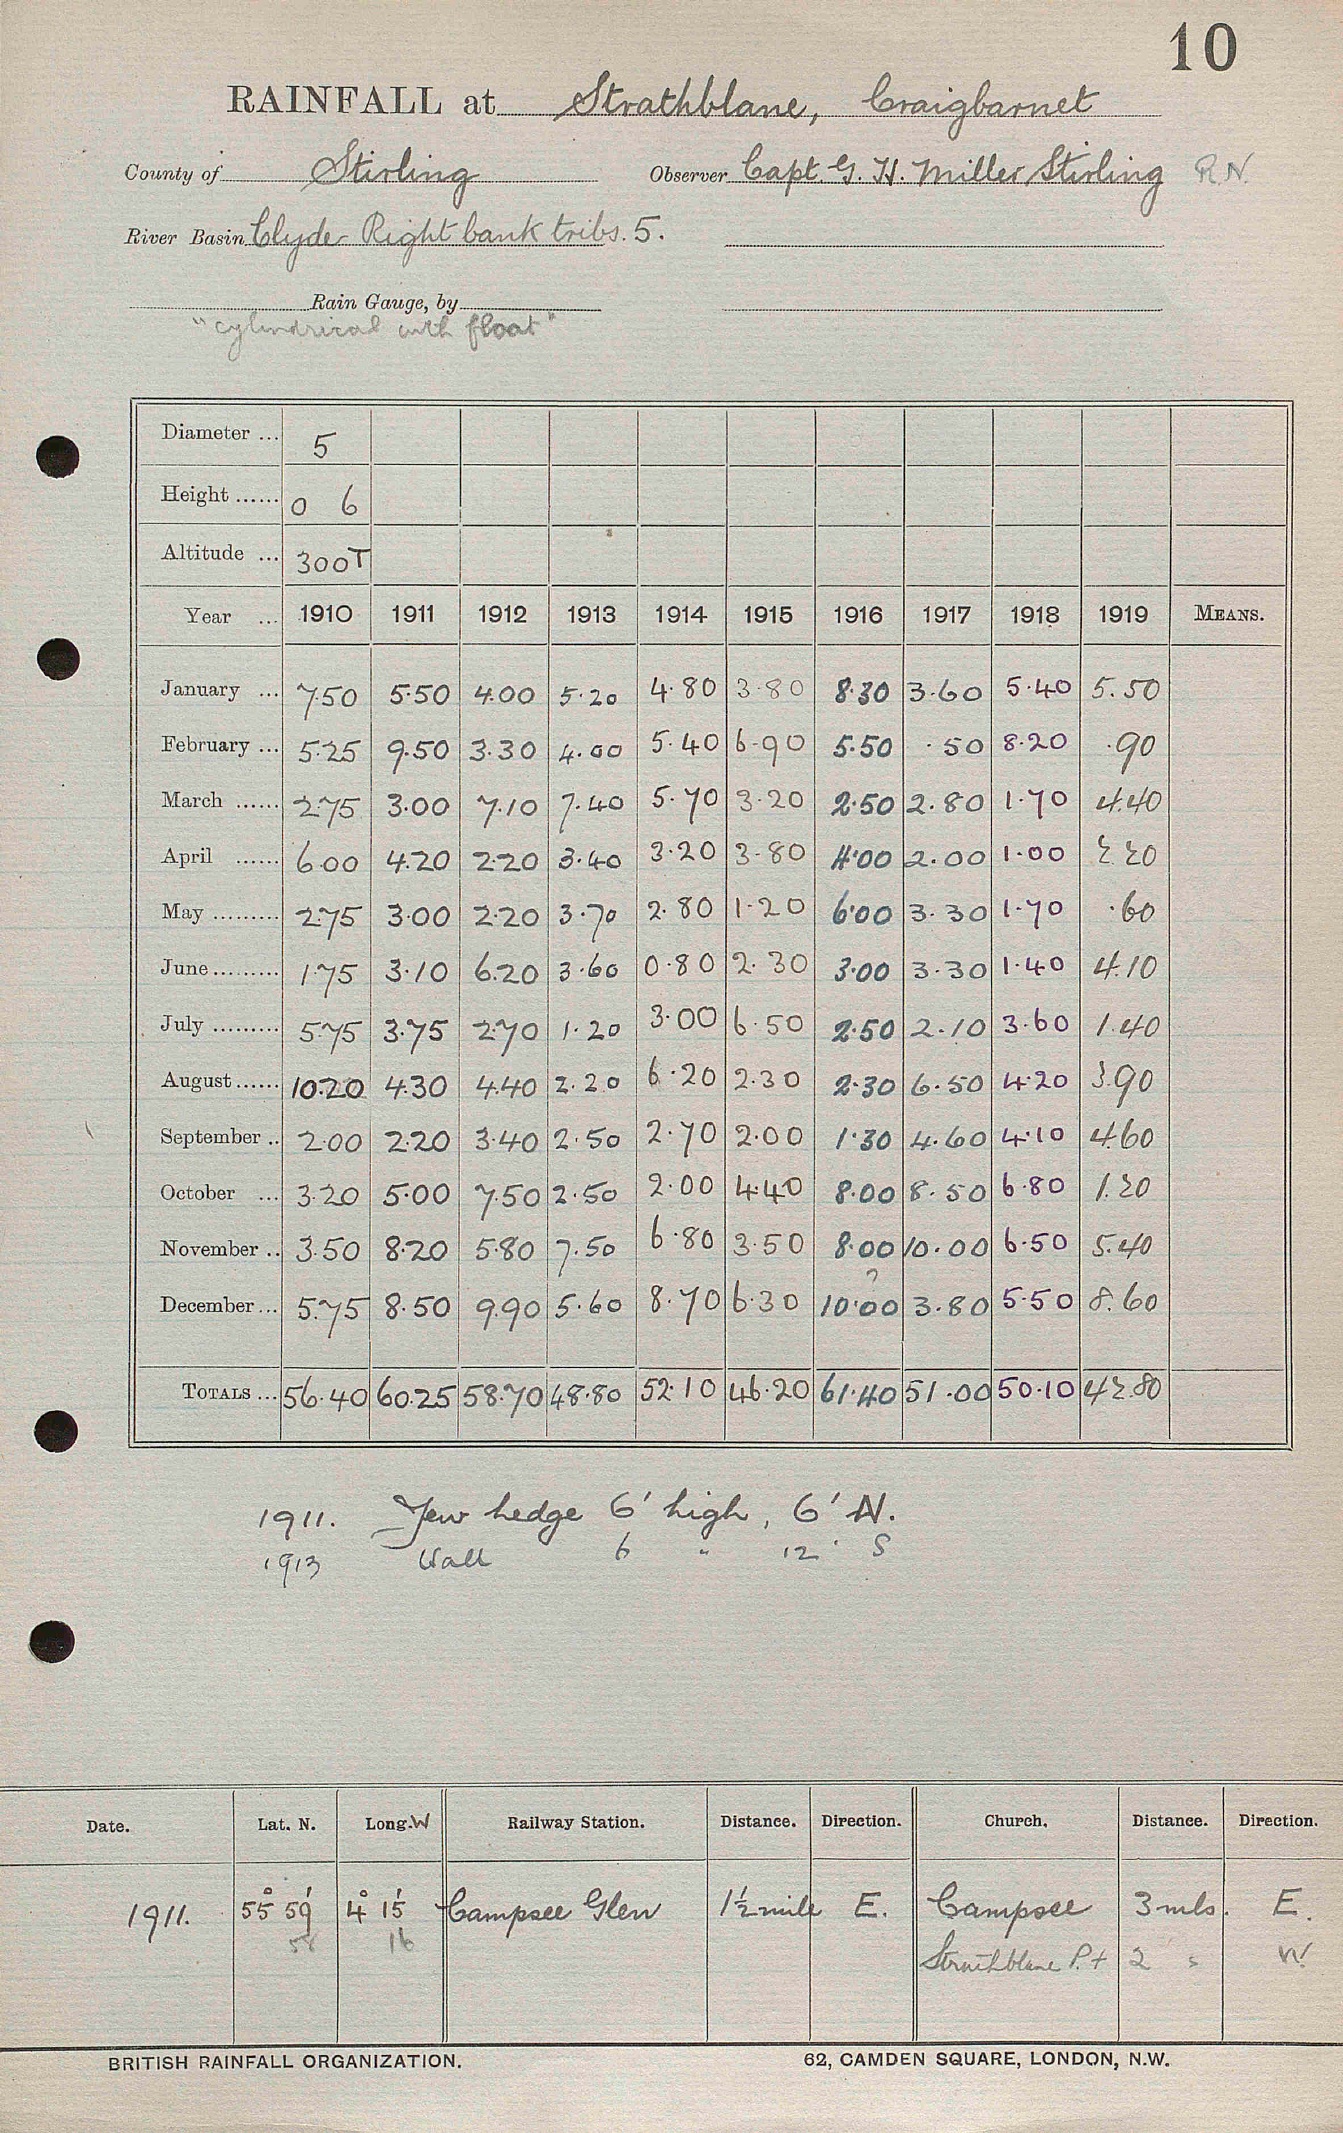 10
RAINFALL at Strathblane, Craigbarnet
County of Stirling Observer Capt. G. H. Miller Stirling R.N.
River Basin Clyde Right bank tribs. 5.
Rain Gauge, by
"cylindrical with float"
Diameter ... 5
Height ...... 0 6
Altitude ... 300T
Year ... 1910 1911 1912 1913 1914 1915 1916 1917 1918 1919 MEANS.
January ... 7.50 5.50 4.00 5.20 4.80 3.80 8.30 3.60 5.40 5.50
February ... 5.25 9.50 3.30 4.00 5.40 6.90 5.50 .50 8.20 .90
March ...... 2.75 3.00 7.10 7.40 5.70 3.20 2.50 2.80 1.70 4.40
April ...... 6.00 4.20 2.20 3.40 3.20 3.80 4.00 2.00 1.00 2.20
May ......... 2.75 3.00 2.20 3.70 2.80 1.20 6.00 3.30 1.70 .60
June ......... 1.75 3.10 6.20 3.60 0.80 2.30 3.00 3.30 1.40 4.10
July ......... 5.75 3.75 2.70 1.20 3.00 6.50 2.50 2.10 3.60 1.40
August ...... 10.20 4.30 4.40 2.20 6.20 2.30 2.30 6.50 4.20 3.90
September .. 2.00 2.20 3.40 2.50 2.70 2.00 1.30 4.60 4.10 4.60
October ... 3.20 5.00 7.50 2.50 2.00 4.40 8.00 8.50 6.80 1.20
November .. 3.50 8.20 5.80 7.50 6.80 3.50 8.00 10.00 6.50 5.40
?
December ... 5.75 8.50 9.90 5.60 8.70 6.30 10.00 3.80 5.50 8.60
TOTALS ... 56.40 60.25 58.70 48.80 52.10 46.20 61.40 51.00 50.10 42.80
1911. Yew hedge 6' high, 6' N.
1913 Wall 6 " 12' S
Date. Lat. N. Long. W Railway Station. Distance. Direction. Church. Distance. Direction.
1911. 55° 59' 4° 15' Campsee Glen 1½ mile E. Campsee 3 mls. E.
58 16 Strathblane P.+ 2 s W.
BRITISH RAINFALL ORGANIZATION. 62, CAMDEN SQUARE, LONDON, N.W.